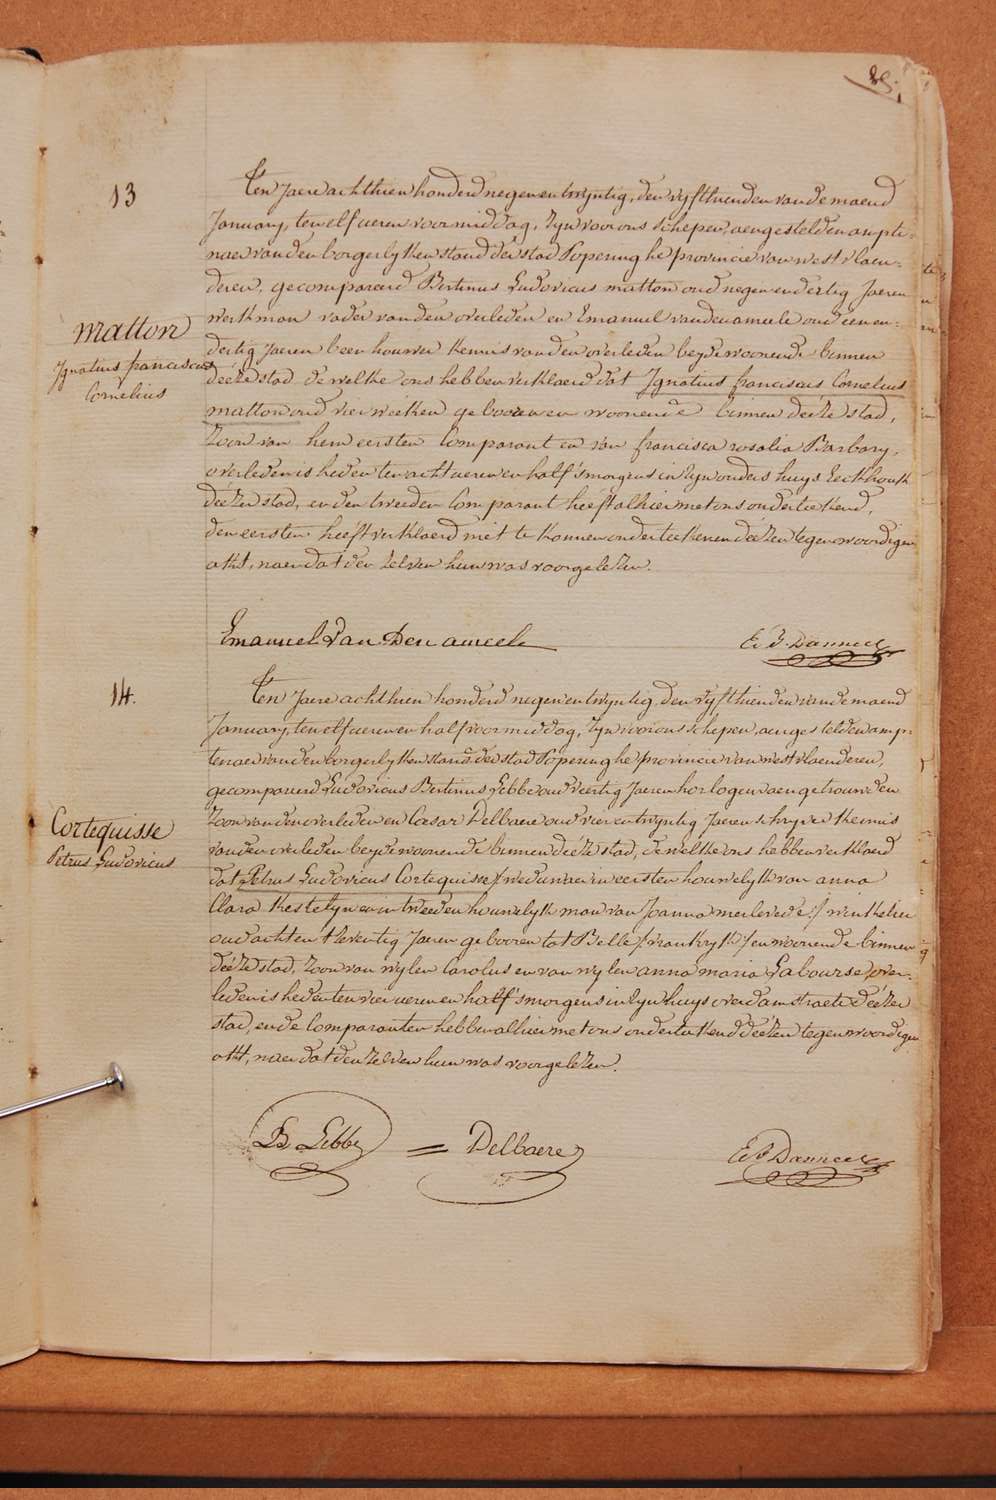 13
Ten Jaere achthien honderd negen en twyntig, den vyfthienden van de maend
January, ten elf ueren voormiddag, Zyn voor ons schepen, aengestelden ampte-
naer van den borgerlyken stand der stad Poperinghe provincie van westvlaen-
deren, gecompareerd Bertinus Ludovicus matton oud negen en dertig Jaeren
werkman vader van den overleden en Emanuel vandenameele oud een en
dertig Jaeren beenhouwer kennis van den overleden beyde woonende binnen
deéze stad de welke ons hebben verklaerd dat Ignatius franciscus Cornelius
matton oud vier weéken gebooren en woonende binnen deéze stad,
Zoon van hem eersten Comparant en van francisca rosalia Barbary,
overleden is heden ten acht ueren en half 's morgens in zyn ouders huys Eeckhoutk
deézer stad, en den tweeden Comparant heeft alhier met ons onderteekend,
den eersten heéft verklaerd niet te konnen onderteekenen deézen tegenwoordigen
akt, naer dat den zelven hun was voorgelezen.
matton
Ignatius franciscus
Cornelius
Emanuel Van Den ameele
14.
Ten Jaere achthien honderd negen en twyntig, den vyfthienden van de maend
January, ten elf ueren en half voormiddag, Zyn voor ons schepen, aengestelden amp-
tenaer van den borgerlyken stand der stad Poperinghe provincie van westvlaenderen,
gecompareerd Ludovicus Bertinus Lebbe oud veertig Jaeren horlogier aengetrouwden
Zoon van den overleden en Cæsar Delbaere oud vier en twyntig Jaeren schryver kennis
van den overleden beyde woonende binnen deéze stad, de welke ons hebben verklaerd
dat Petrus Ludovicus Cortequisse /weduwaer in eersten houwelyk van anna
Clara Kestelyn en in tweeden houwelyk man van Joanna merlevede:/ winkelier
oud acht en tseventig Jaeren gebooren tot Belle /vrankryk:/ en woonende binnen
deéze stad, Zoon van wylen Carolus en van wylen anna maria Labourse, over-
leden is heden ten vier ueren en half 's morgens in zyn huys overdamstraete deézer
stad, en de Comparanten hebben alhier met ons onderteekend deézen tegenwoordigen
akt, naer dat den zelven hun was voorgelezen.
Cortequisse
Petrus Ludovicus
LB Lebbe = Delbaere